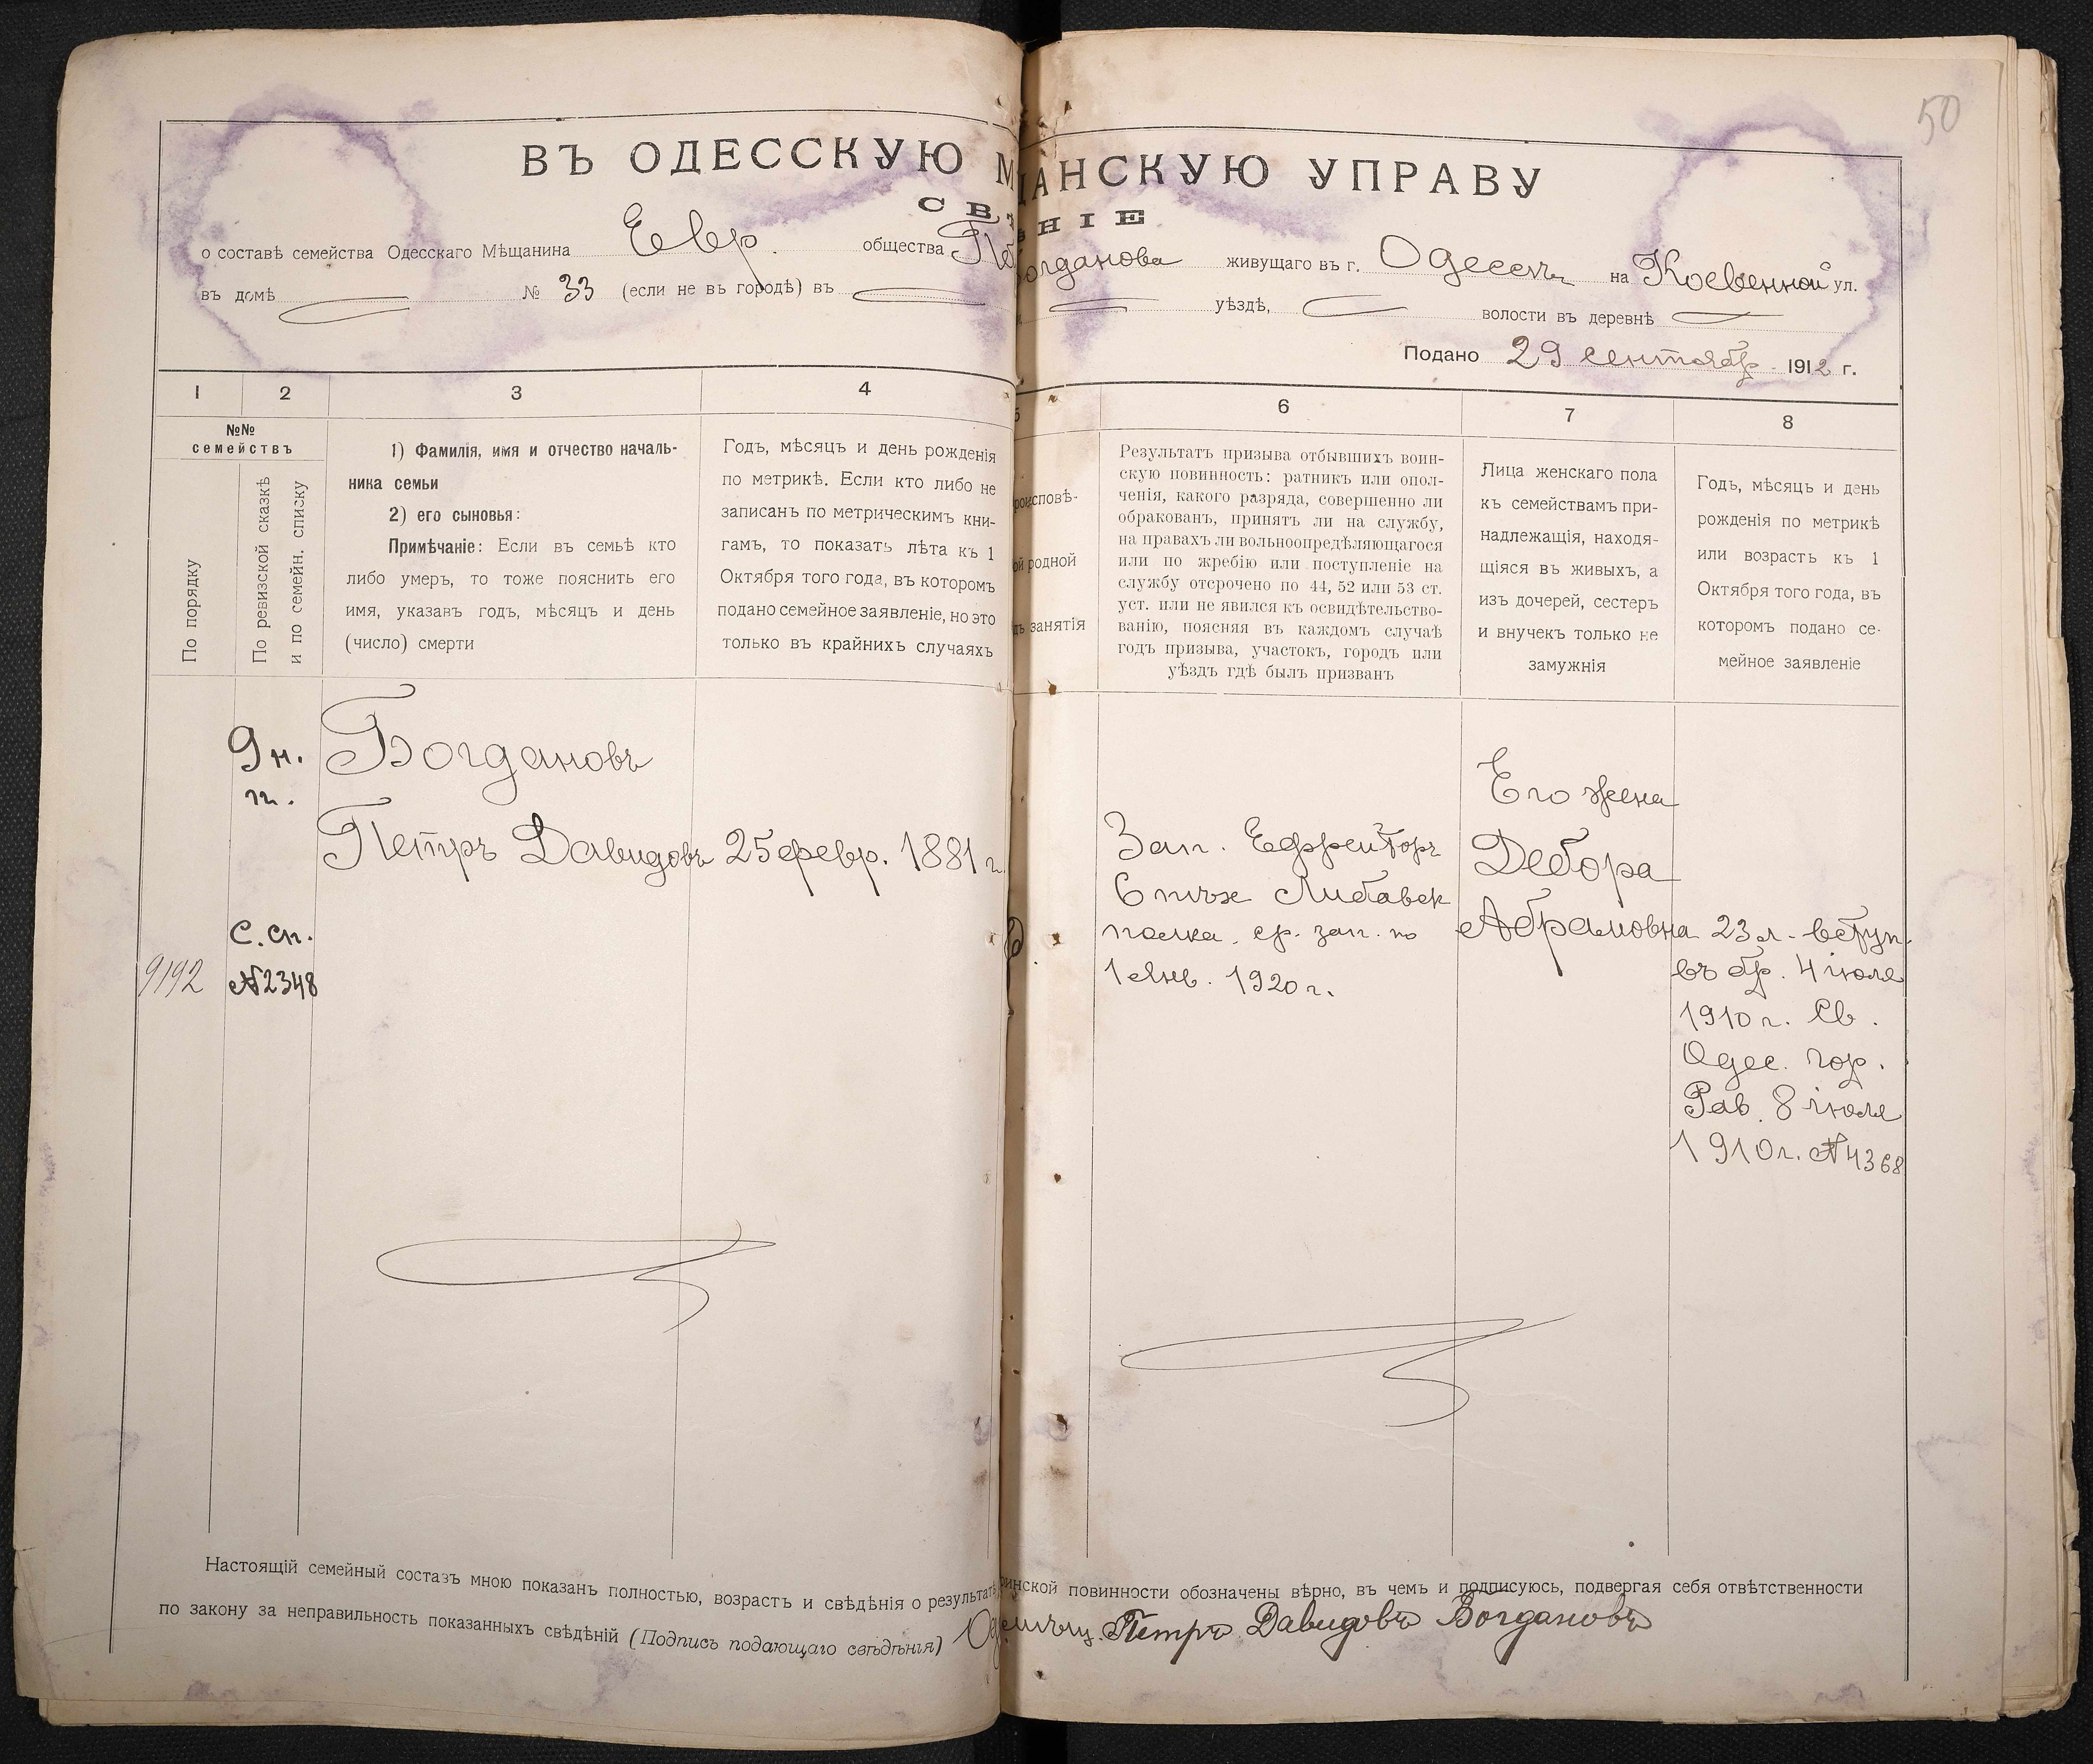 50
ВЪ ОДЕССКУЮ М ЩАНСКУЮ УПРАВУ
СВѢ ѢНІЕ
о составѣ семейства Одесскаго Мѣщанина Евр. общества Пе Богданова живущаго въ г. Одессѣ на Косвенной ул.
въ домѣ № 33 (если не въ городѣ) въ уѣздѣ, волости въ деревнѣ
Подано 29 сентябр. 1912 г.
1 2 3 4 5 6 7 8
№№
семействъ
По порядку
По ревизской сказкѣ
и по семейн. списку
1) Фамилія, имя и отчество началь-
ника семьи
2) его сыновья:
Примѣчаніе: Если въ семьѣ кто
либо умеръ, то тоже пояснить его
имя, указавъ годъ, мѣсяцъ и день
(число) смерти
Годъ, мѣсяцъ и день рожденія
по метрикѣ. Если кто либо не
записанъ по метрическимъ кни-
гамъ, то показать лѣта къ 1
Октября того года, въ которомъ
подано семейное заявленіе, но это
только въ крайнихъ случаяхъ
роисповѣ-
ой родной
дъ занятія
Результатъ призыва отбывшихъ воин-
скую повинность: ратникъ или опол-
ченія, какого разряда, совершенно ли
обракованъ, принятъ ли на службу,
на правахъ ли вольноопредѣляющагося
или по жребію или поступленіе на
службу отсрочено по 44, 52 или 53 ст.
уст. или не явился къ освидѣтельство-
ванію, поясняя въ каждомъ случаѣ
годъ призыва, участокъ, городъ или
уѣздъ гдѣ былъ призванъ
Лица женскаго пола
къ семействамъ при-
надлежащія, находя-
щіяся въ живыхъ, а
изъ дочерей, сестеръ
и внучекъ только не
замужнія
Годъ, мѣсяцъ и день
рожденія по метрикѣ
или возрастъ къ 1
Октября того года, въ
которомъ подано се-
мейное заявленіе
9 н.
п.
С. сп.
9192 №2348
Богдановъ
Петръ Давидовъ 25 февр. 1881 г.
Зап. Ефрейторъ
6 пѣх Либавск
полка. ср. зап. по
1 Янв. 1920 г.
Его жена
Дебора
Абрамовна
23 л. вступ.
въ бр. 4 іюля
1910 г. Св.
Одес. гор.
Рав. 8 іюля
1910 г. №4368
Настоящій семейный составъ мною показанъ полностью, возрастъ и свѣдѣнія о результатѣ инской повинности обозначены вѣрно, въ чемъ и подписуюсь, подвергая себя отвѣтственности
по закону за неправильность показанныхъ свѣдѣній (Подпись подающаго свѣдѣнія) Од мѣщ. Петръ Давидовъ Богдановъ